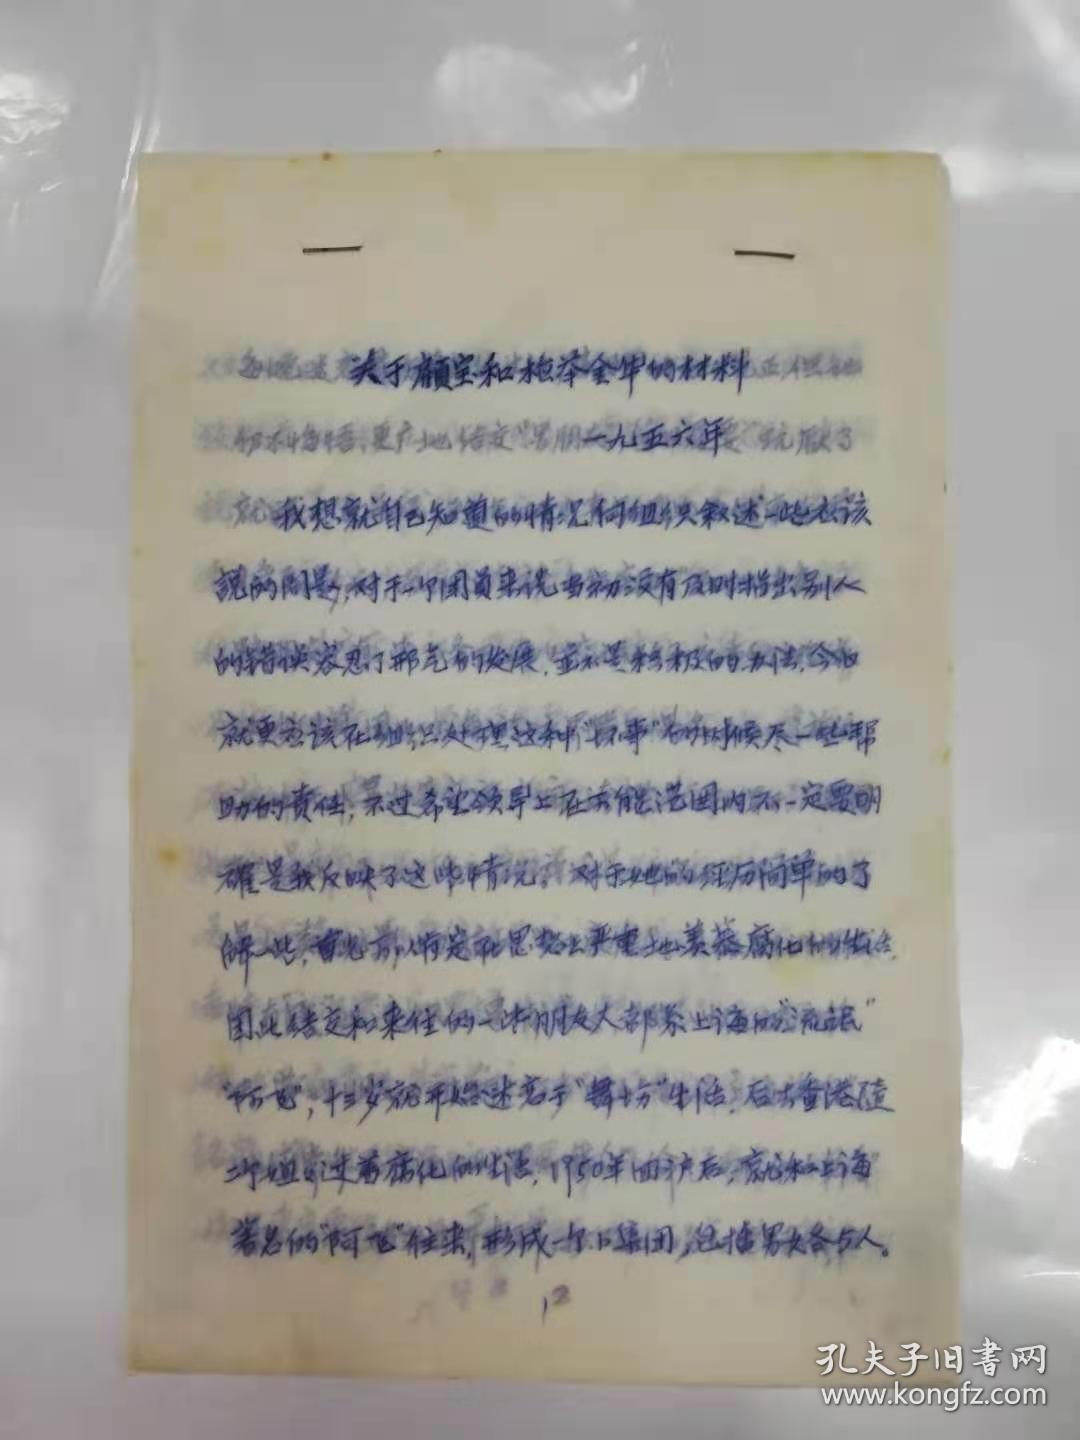 关于顾宝和桂苓金年的材料
一九五六年
我想就自己知道的情况向组织叙述一些应该
説的问题，对于一个团员来说当初没有及时指出别人
的错误容忍了邪气的发展，並不是积极的办法，今日
就更应该在组织处理这种"坏事"的时候尽一些帮
助的责任，不过希望领导上在可能范围内不一定要明
确是我反映了这些情况。对于她的经历简单的了
解一些，首先可以肯定她思想上严重地羡慕腐化的生活，
因此结交和来往的一些朋友大部系上海的"流氓"
"阿飞"，十三岁就开始迷恋于"舞场"生活，后去香港随
姐 过着腐化的生活，1950年回沪后，就和上海
著名的"阿飞"往来，形成一个小集团，包括男女各5人。
12
孔夫子旧书网
www.kongfz.com